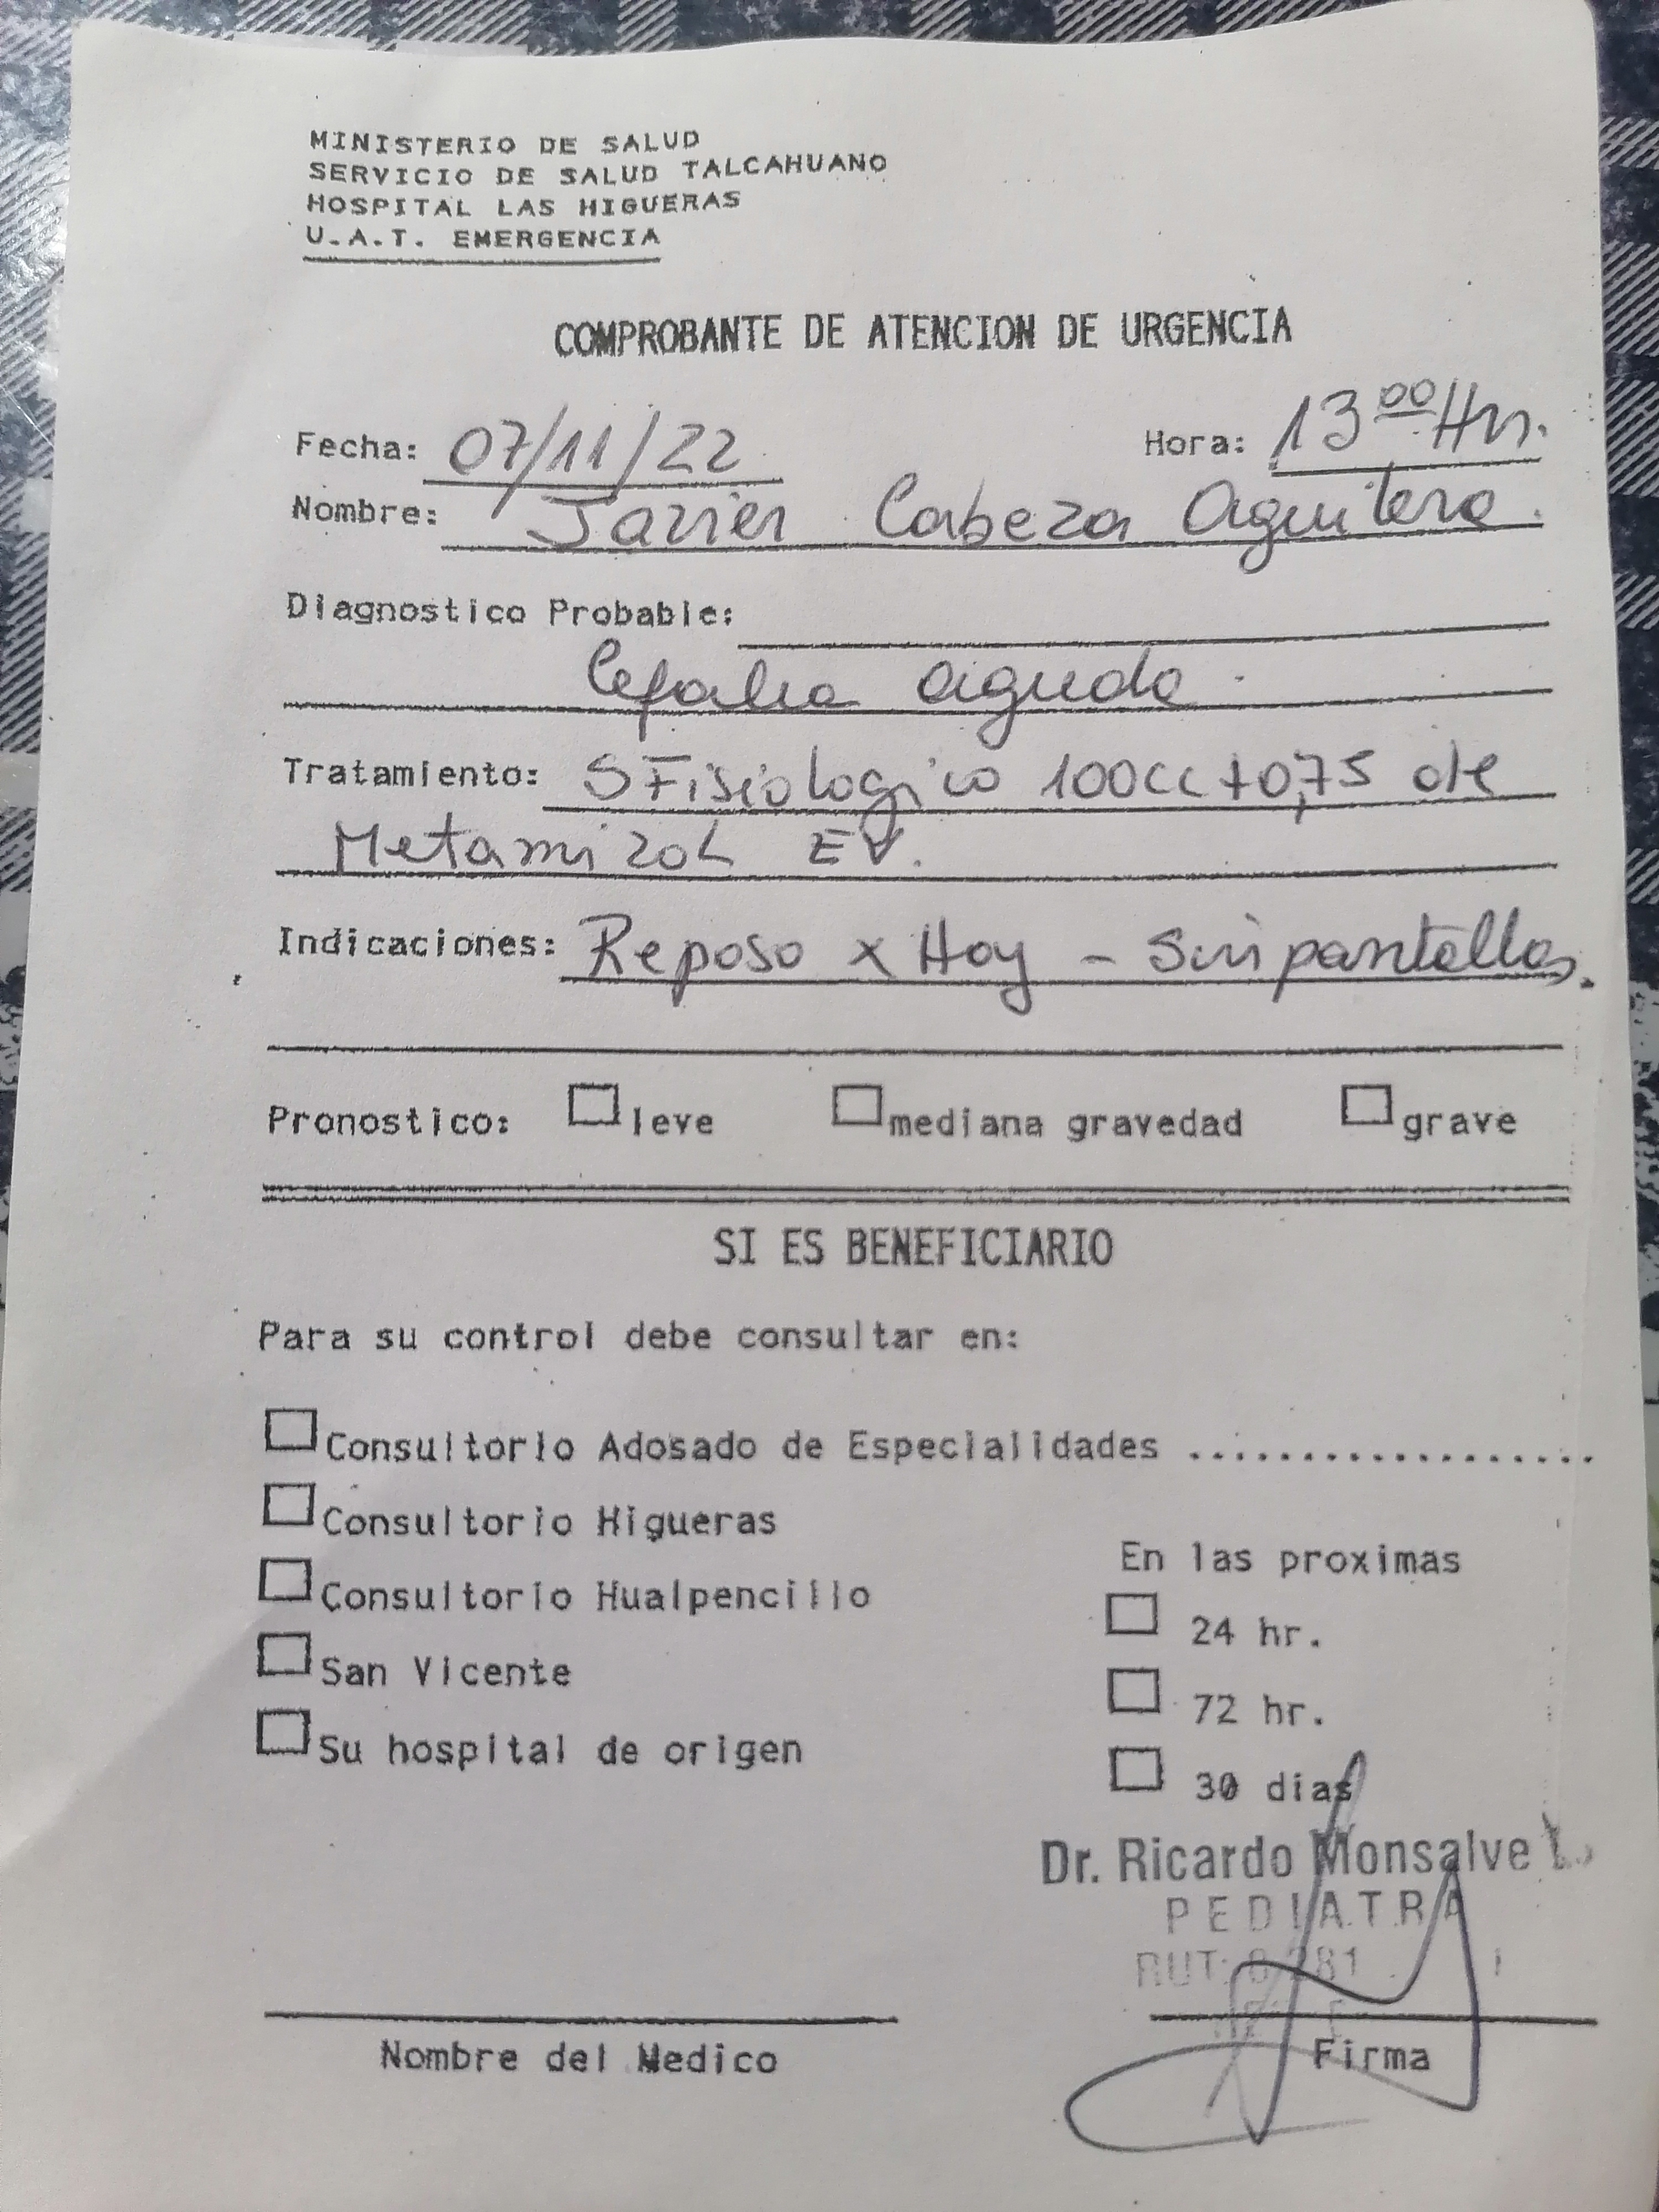 MINISTERIO DE SALUD
SERVICIO DE SALUD TALCAHUANO
HOSPITAL LAS HIGUERAS
U.A.T. EMERGENCIA
COMPROBANTE DE ATENCION DE URGENCIA
Fecha: 07/11/22 Hora: 13 00 Hrs.
Nombre: Javier Cabeza Aguilera.
Diagnostico Probable:
Cefalea aguda.
Tratamiento: SFisiologico 100cc + 0,75 de
Metamizol EV.
Indicaciones: Reposo x Hoy - Sin pantallas.
Pronostico: leve mediana gravedad grave
SI ES BENEFICIARIO
Para su control debe consultar en:
Consultorio Adosado de Especialidades ..................
Consultorio Higueras
En las proximas
Consultorio Hualpencillo
24 hr.
San Vicente
72 hr.
Su hospital de origen
30 dias
Dr. Ricardo Monsalve
PEDIATRA
RUT:
Nombre del Medico Firma